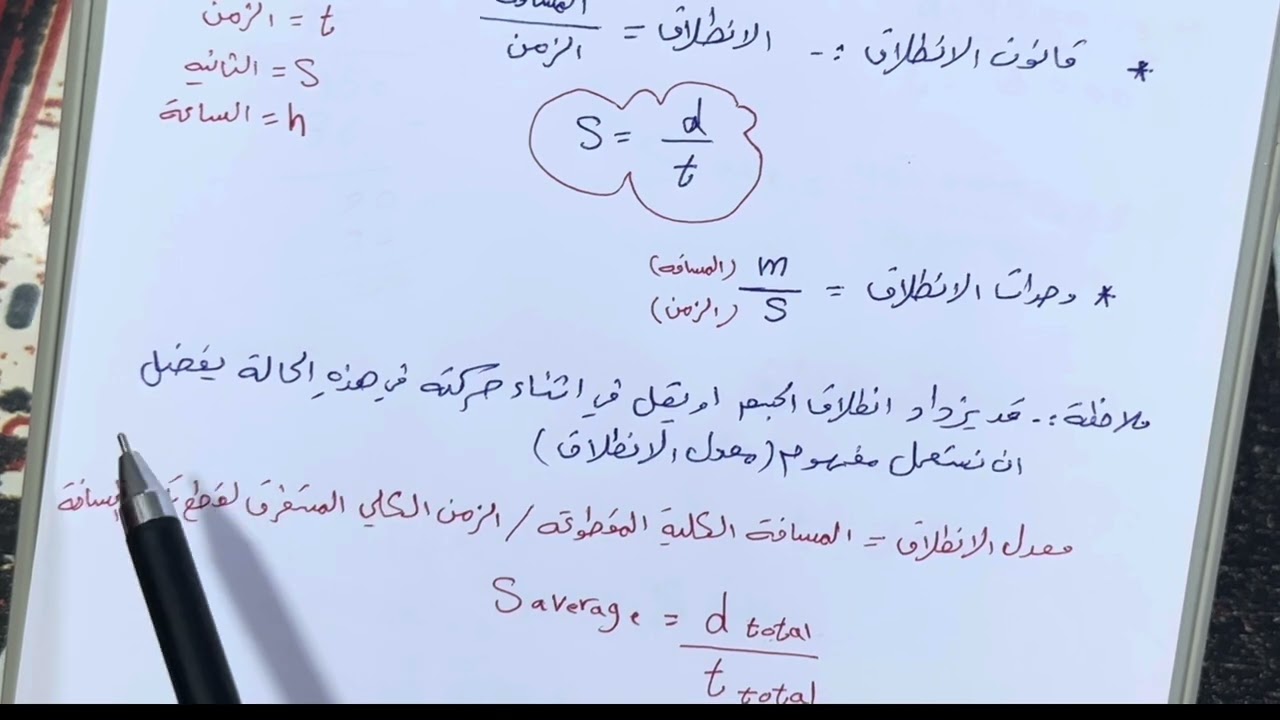 * قانون الانطلاق :- الانطلاق = المسافة / الزمن
t = الزمن
S = الثانيه
h = الساعة
S = d / t
* وحدات الانطلاق = m (المسافه) / S (الزمن)
ملاحظة :- قد يزداد انطلاق الجسم او يقل في اثناء حركته في هذهِ الحالة يفضل
ان نستعمل مفهوم (معدل الانطلاق)
معدل الانطلاق = المسافة الكلية المقطوعه / الزمن الكلي المستغرق لقطع المسافة
S average = d total / t total